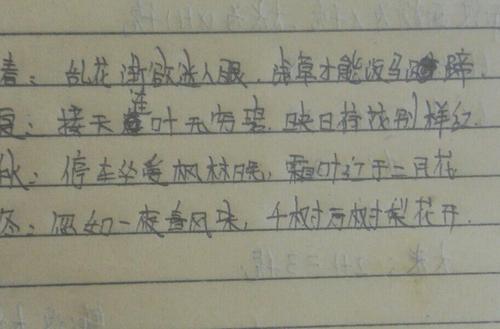 春：乱花渐欲迷人眼，浅草才能没马蹄
夏：接天莲叶无穷碧，映日荷花别样红
秋：停车坐爱枫林晚，霜叶红于二月花
冬：忽如一夜春风来，千树万树梨花开.